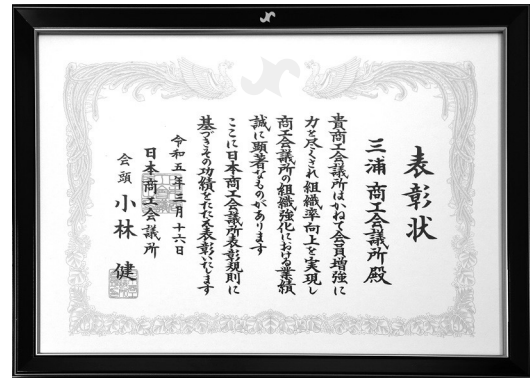 表彰状
三浦商工会議所殿
貴商工会議所はかねて会員増強に
力を尽くされ組織率向上を実現し
商工会議所の組織強化における業績
誠に顕著なものがあります
ここに日本商工会議所表彰規則に
基づきその功績をたたえ表彰いたします
令和五年三月十六日
日本商工会議所
会頭 小林 健